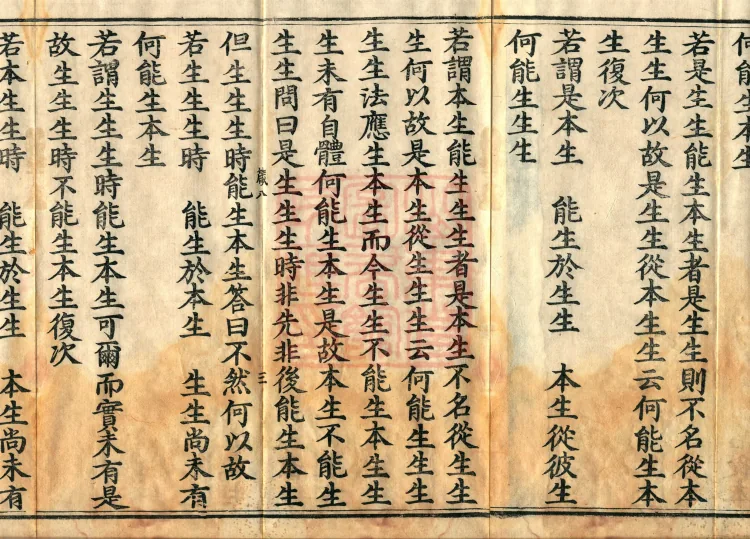 何能生本生
若是生生能生本生者是生生則不名從本
生生何以故是生生從本生生云何能生本
生復次
若謂是本生 能生於生生 本生從彼生
何能生生生
若謂本生能生生生者是本生不名從生生
生何以故是本生從生生生云何能生生生
生生法應生本生而今生生不能生本生生
生未有自體何能生本生是故本生不能生
生生問曰是生生生時非先非後能生本生
八 三
但生生生時能生本生答曰不然何以故
若生生生時 能生於本生 生生尚未有
何能生本生
若謂生生生時能生本生可爾而實未有是
故生生生時不能生本生復次
若本生生時 能生於生生 本生尚未有